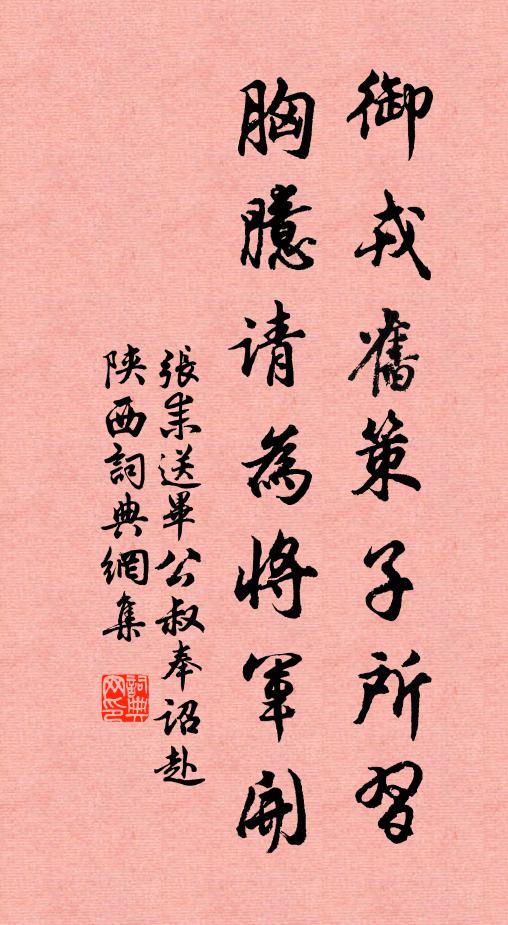 御戎舊策子所習
胸臆请為將軍開
張耒送畢公叔奉詔赴
陝西詞典網集
詞典網印